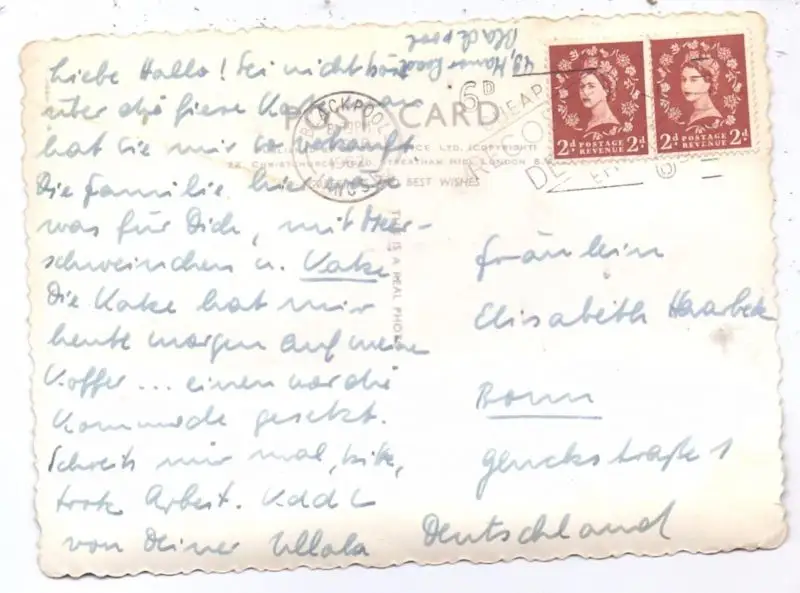 Manor Road
Blackpool
Liebe Hallo! Sei nicht bös
über die fiese Karte,
hat sie mir so verkauft
Die Familie hier wär
was für Dich, mit Meer-
schweinchen u. Katze
Die Katze hat mir
heute morgen auf meine
Koffer ... einen vor die
Kommode gesetzt.
Schreib mir mal, bitte,
trotz Arbeit.
von Deiner Ullala
POST CARD
LTD. (COPYRIGHT)
CHRISTCHURCH ROAD, STREATHAM HILL, LONDON
BEST WISHES
THIS IS A REAL PHOTO
BLACKPOOL
6D
2d POSTAGE REVENUE 2d
2d POSTAGE REVENUE 2d
Fräulein
Elisabeth Haarbeck
Bonn
Gluckstraße 1
Deutschland